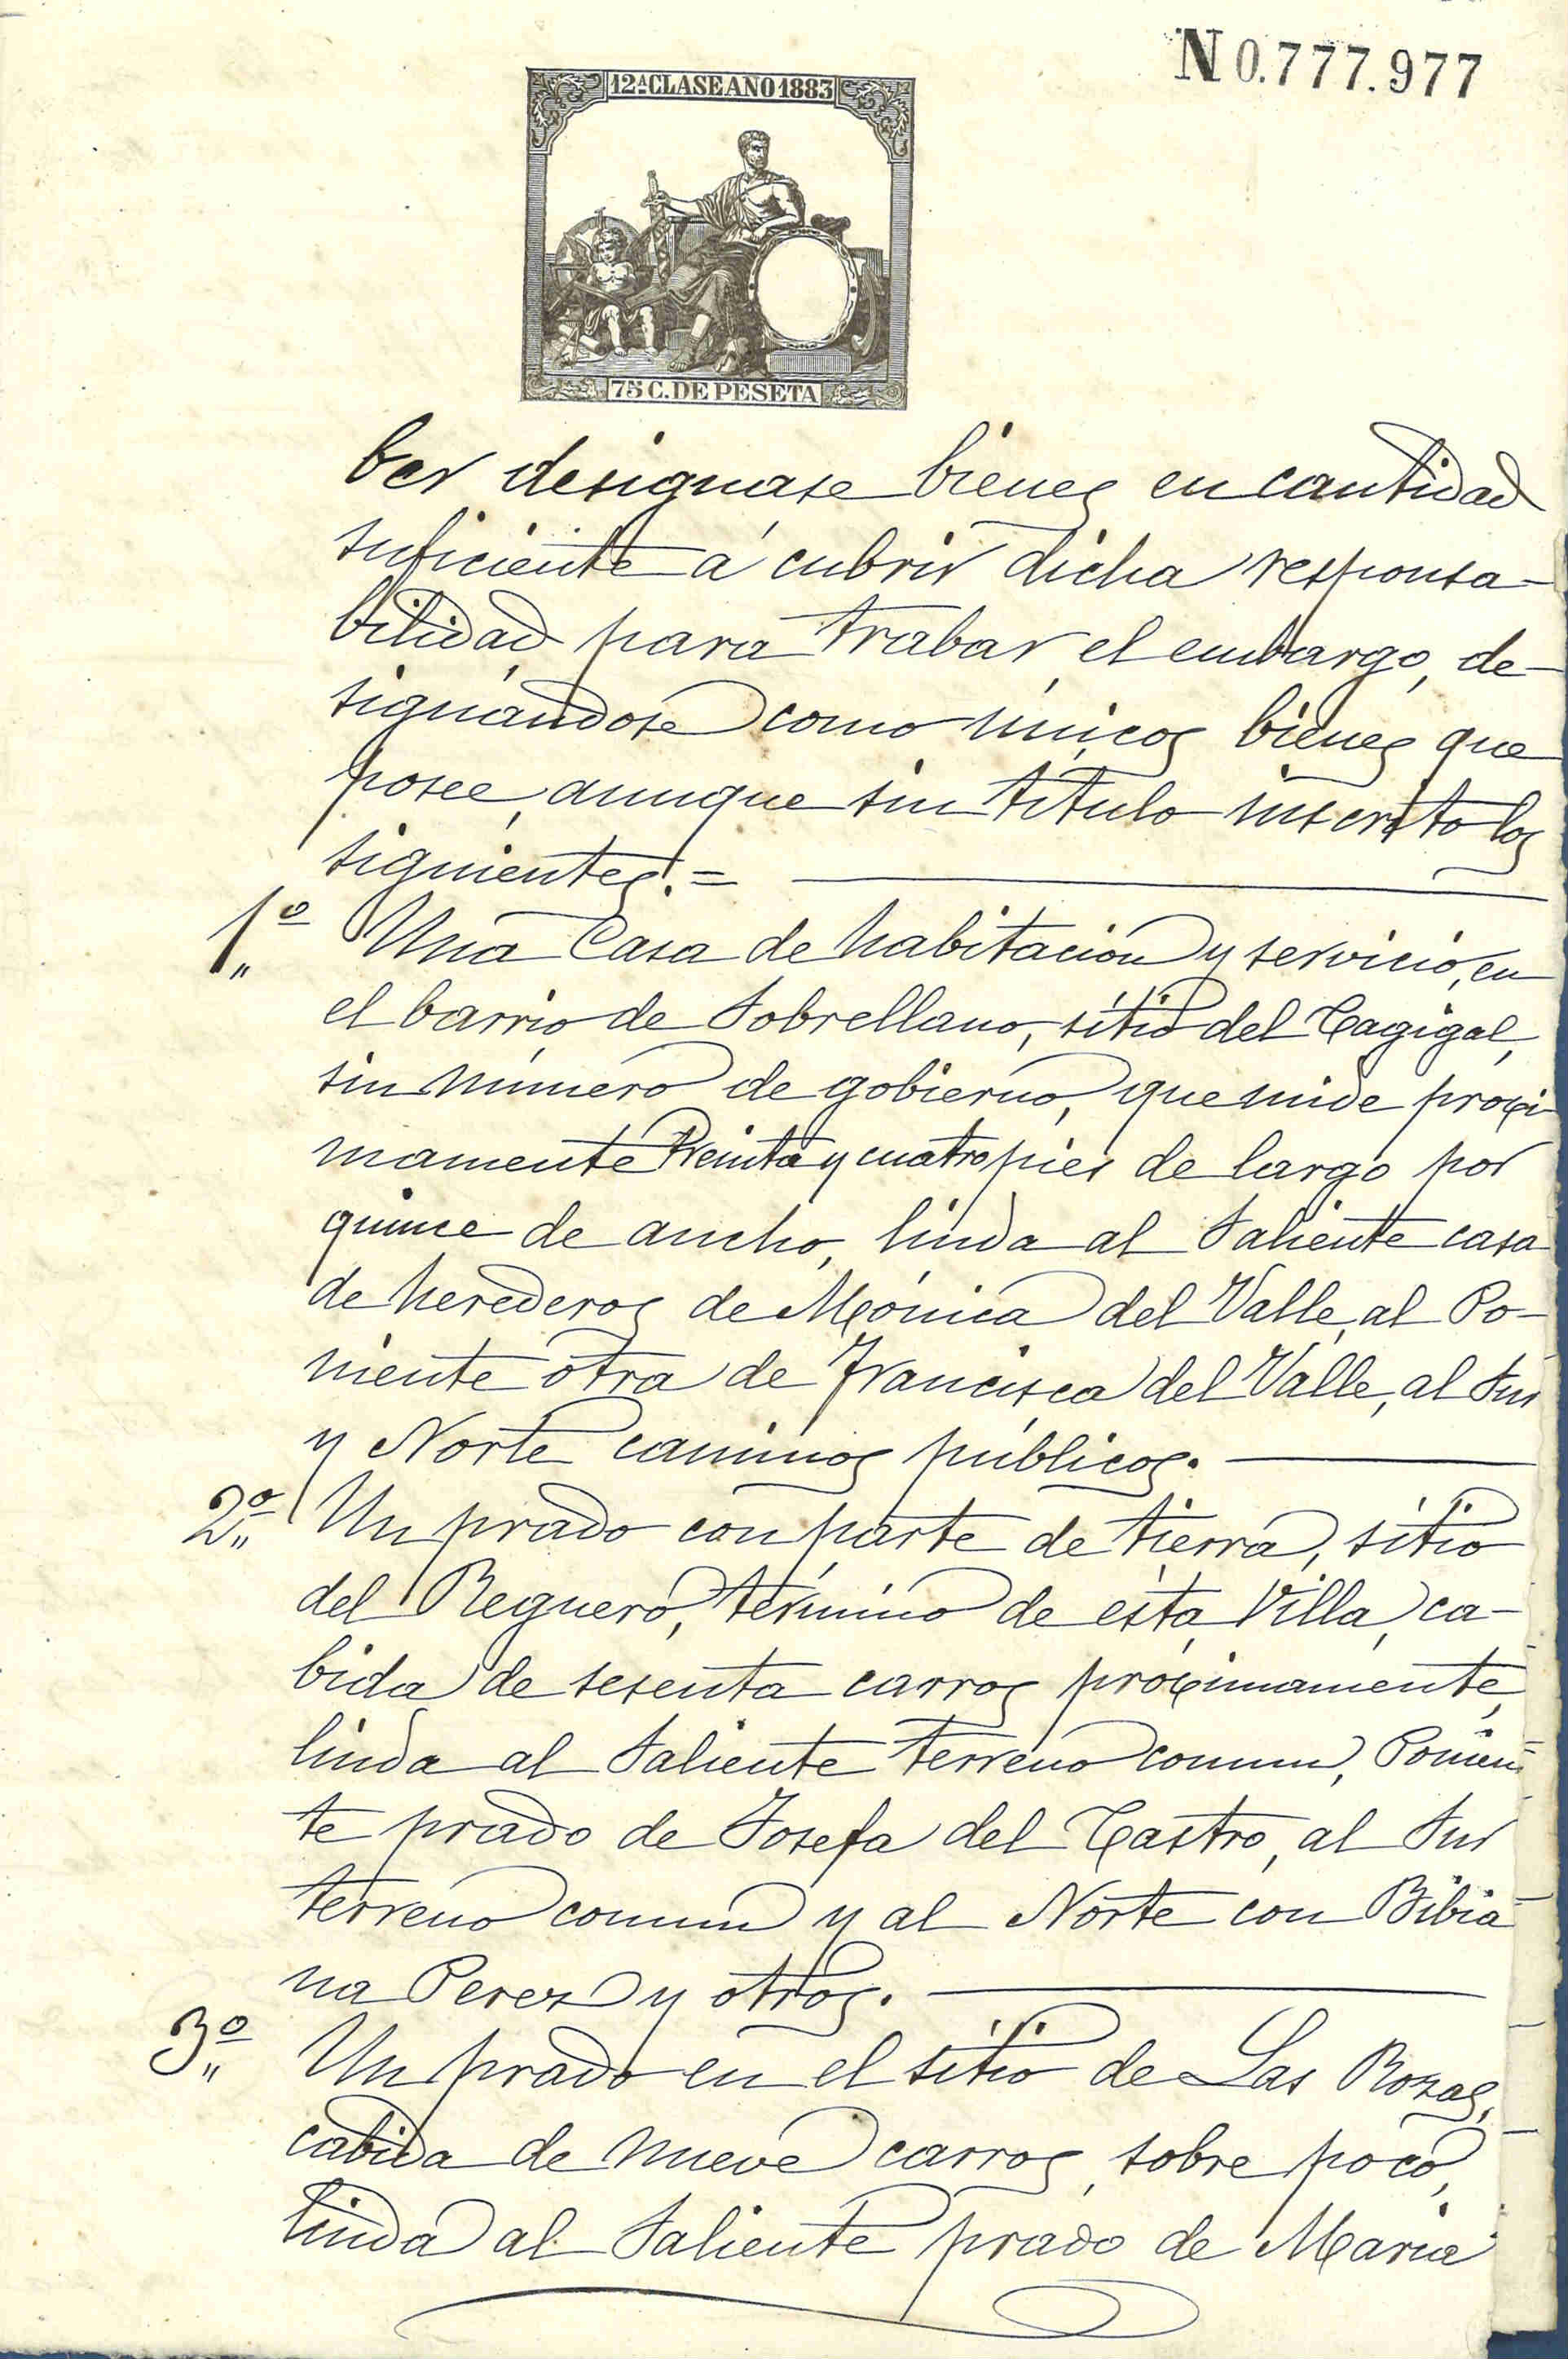 N 0.777.977
12ª CLASE AÑO 1883
75 C. DE PESETA
ber designase bienes en cantidad
suficiente á cubrir dicha responsa-
bilidad para trabar el embargo, de-
signándose como únicos bienes que
posee, aunque sin título inscrito los
siguientes. =
1º Una Casa de habitacion y servicio, en
el barrio de Sobrellano, sitio del Cagigal,
sin número de gobierno, que mide proxi
mamente treinta y cuatro pies de largo por
quince de ancho, linda al Saliente casa
de herederos de Mónica del Valle, al Po-
niente otra de Francisca del Valle, al Sur
y Norte caminos públicos.
2º Un prado con parte de tierra, sitio
del Reguero, término de esta Villa, ca-
bida de sesenta carros próximamente,
linda al Saliente terreno comun, Ponien-
te prado de Josefa del Castro, al Sur
terreno comun y al Norte con Bibia-
na Perez y otros.
3º Un prado en el sitio de Las Rozas,
cabida de nueve carros, sobre poco,
linda al Saliente prado de Maria